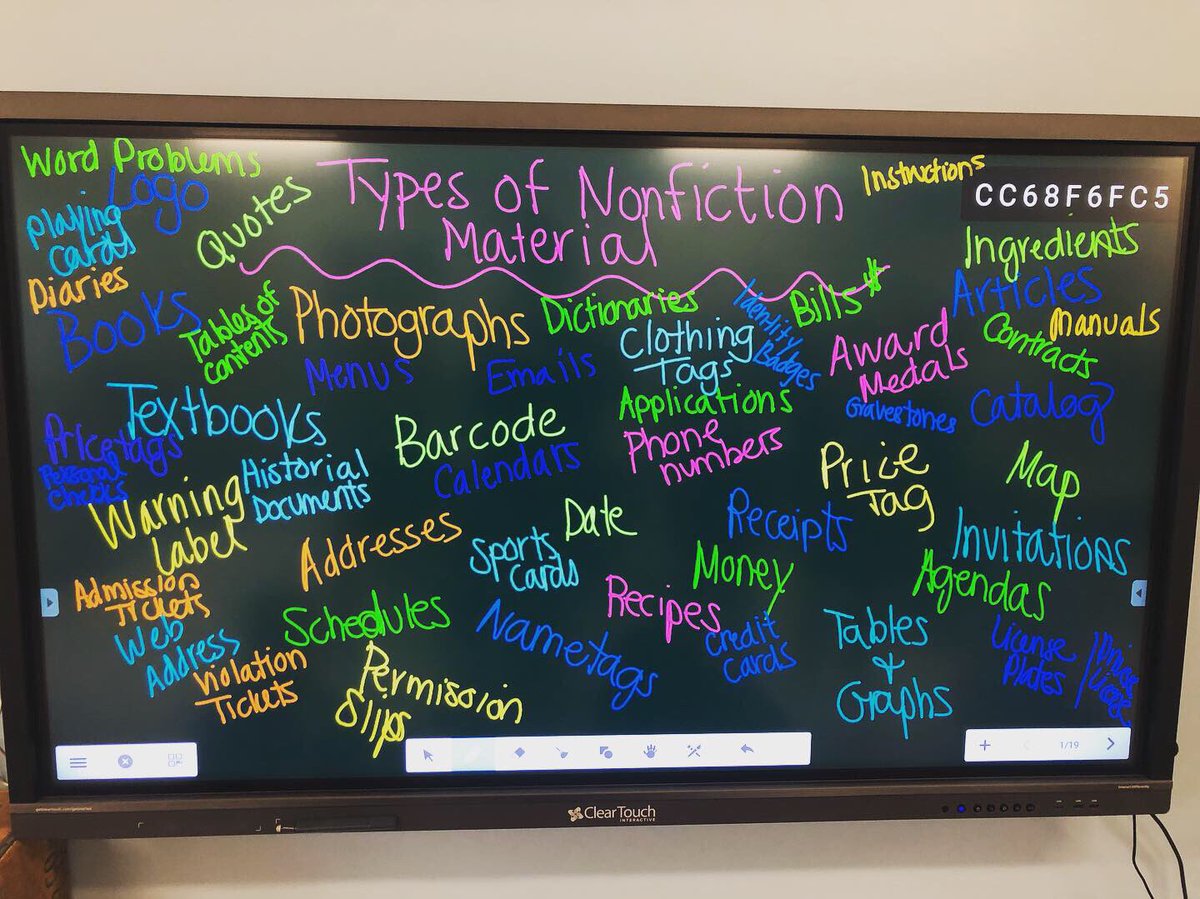 Types of Nonfiction
Material
Word Problems
Logo
Playing
Cards
Quotes
Diaries
Instructions
CC68F6FC5
Ingredients
Articles
Manuals
Books
Tables of
Contents
Photographs
Dictionaries
Identity
Badges
Bills $
Clothing
Tags
Award
Medals
Contracts
Menus
Emails
Textbooks
Applications
Gravestones
Catalog
Pricetags
Personal
Checks
Barcode
Calendars
Phone
numbers
Historial
Documents
Price
Tag
Map
Warning
Label
Addresses
Date
Receipts
Invitations
Sports
Cards
Money
Agendas
Admission
Tickets
Recipes
Schedules
Web
Address
Nametags
Credit
Cards
Tables
+
Graphs
License
Plates
Violation
Tickets
Permission
Slips
1/19
ClearTouch
INTERACTIVE